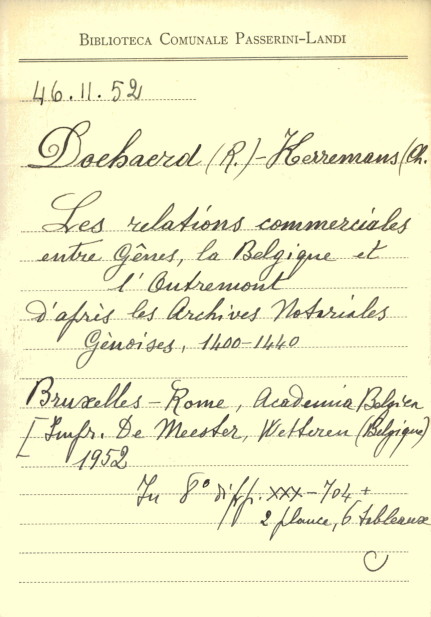 BIBLIOTECA COMUNALE PASSERINI-LANDI
46.11.52
Doehaerd (R.) - Kerremans (Ch.
Les relations commerciales
entre Gênes, la Belgique et
l'Outremont
d'après les Archives Notariales
Génoises, 1400-1440
Bruxelles - Rome, Academia Belgica
[Impr. De Meester, Wetteren (Belgique)
1952
In 8° di pp. XXX - 704 +
2 plance, 6 tableaux
C